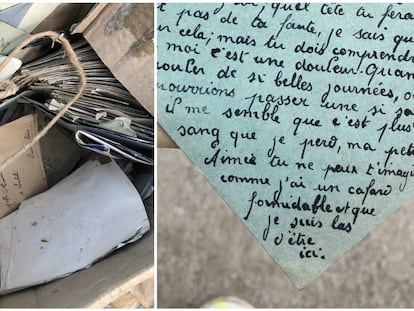 quel cela te fera
pas de ta faute, je sais que
cela, mais tu dois comprendre
moi c'est une douleur. Quand
couler de si belles journées, o
pourrions passer une si jo
il me semble que c'est plus
sang que je perd, ma peti
Aimée tu ne peux t'imagi
comme j'ai un cafard
formidable et que
je suis las
d'être
ici.